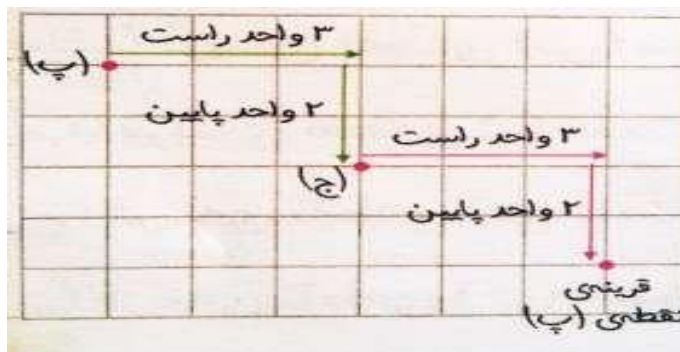 ۳ واحد راست
(پ)
۲ واحد پایین
۳ واحد راست
(ج)
۲ واحد پایین
قرینه‌ی
نقطه‌ی (پ)